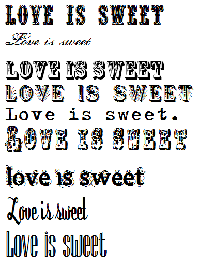 LOVE IS SWEET
Love is sweet
LOVE IS SWEET
LOVE IS SWEET
Love is sweet.
LOVE IS SWEET
love is sweet
Love is sweet
Love is sweet